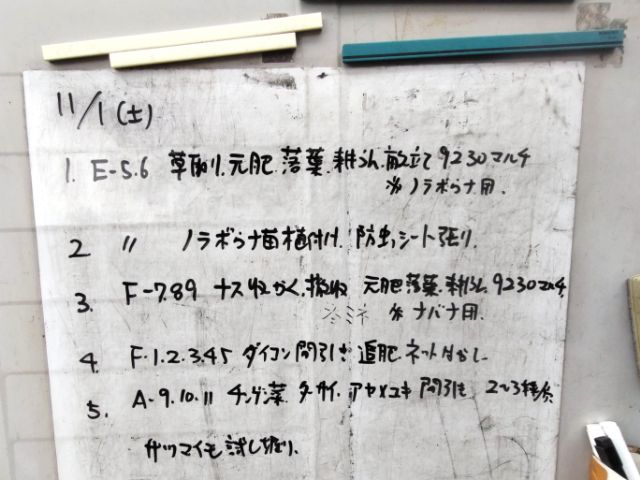 11/1(土)
1. E-5.6 草取り.元肥.落葉.耕うん.畝立て9230マルチ
※ノラボウナ用.
2 〃 ノラボウナ苗植付け.防虫シート張り.
3. F-7.8.9 ナス収かく.撤収 元肥落葉.耕うん.9230マルチ
※ナバナ用.
4. F.1.2.3.4.5 ダイコン間引き追肥.ネットはがし
5. A-9.10.11 チンゲン菜.ターサイ.アヤメユキ間引き 2〜3
サツマイモ試し掘り.